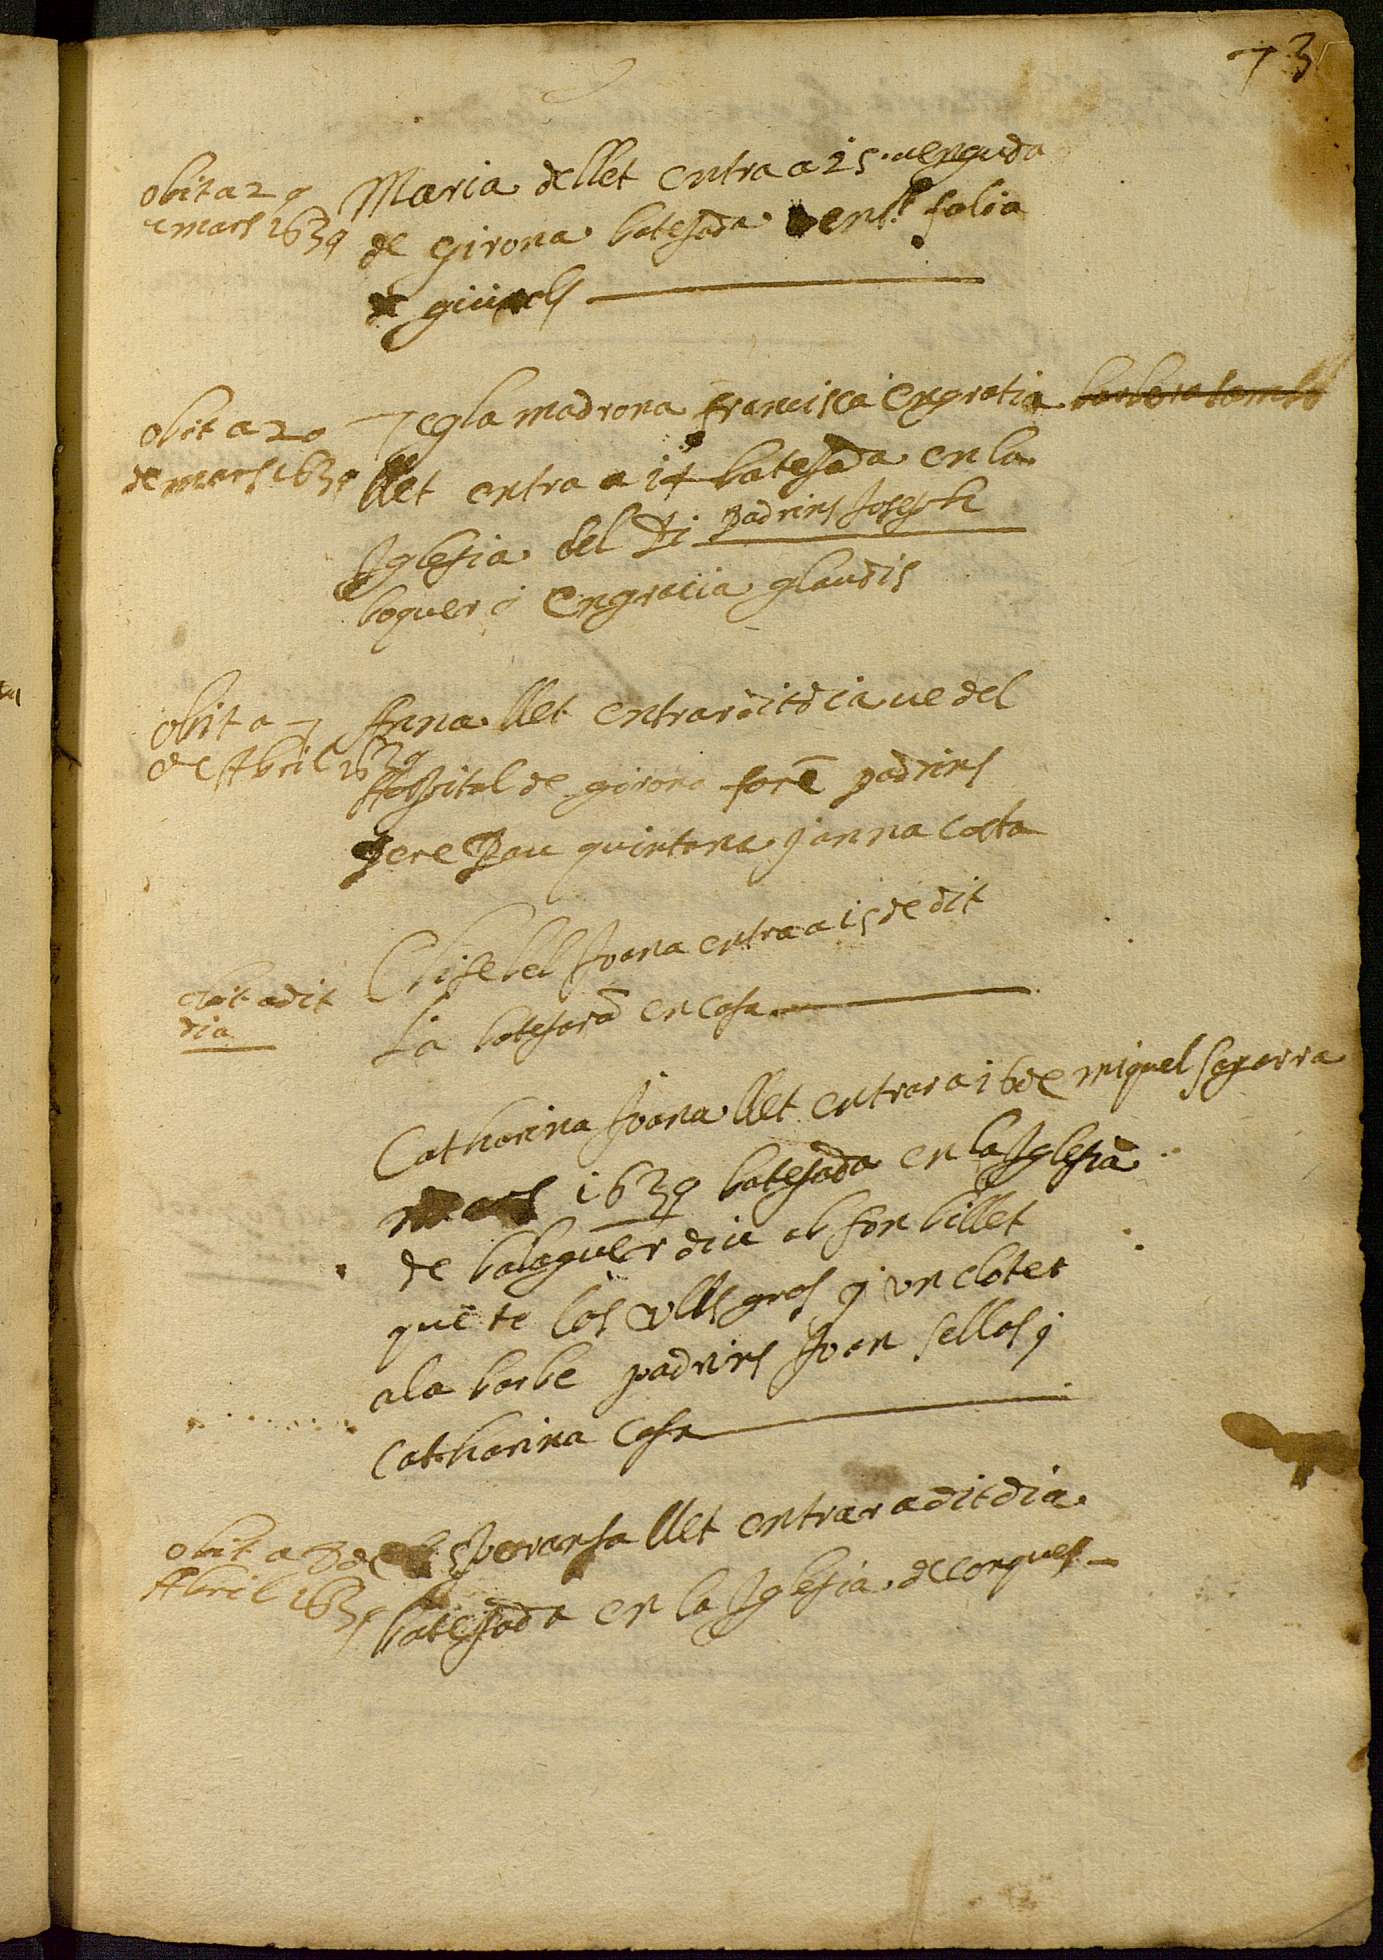 73
obit a 29
mars 1639
Maria de llet entra a 15 venguda
de Girona batejada en St. folia
de guixols
obit a 20
de mars 1639
Tegla madrona Francisca Engratia
llet entra a 14 batejada en la
Iglesia del Pi padrins Joseph
boquer i Engracia glaudis
obit a 7
de Abril 1639
Anna llet entrar dit dia ve del
Hospital de girona forē padrins
Pere Pau quintana j anna costa
obit a dit
dia
Elisebel Joana entra a 15 de dit
batejada en casa
Catharina Joana llet entrar a 16 de miquel segarra
mars 1639 batejada en la Iglesia
de balaguer diu ab son billet
que te los ulls gros j un clotet
a la barbe padrins Joan sellas j
Catharina Casa
obit a 8 de
Abril 1639
Esperansa llet entrar a dit dia
batejada en la Iglesia de conques